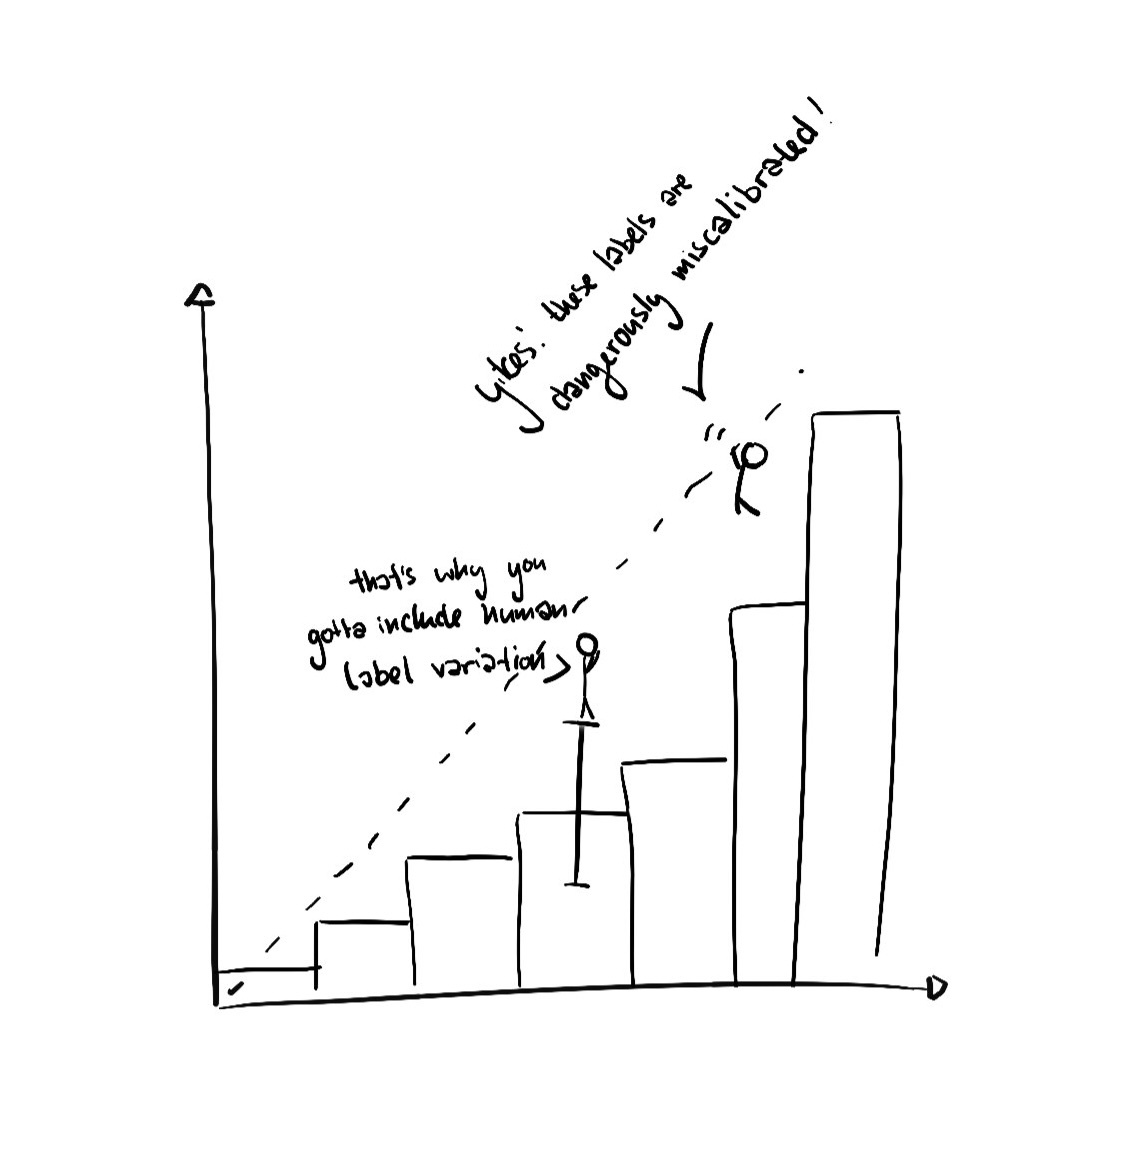 Yikes! these labels are
dangerously miscalibrated!
that's why you
gotta include human
label variation